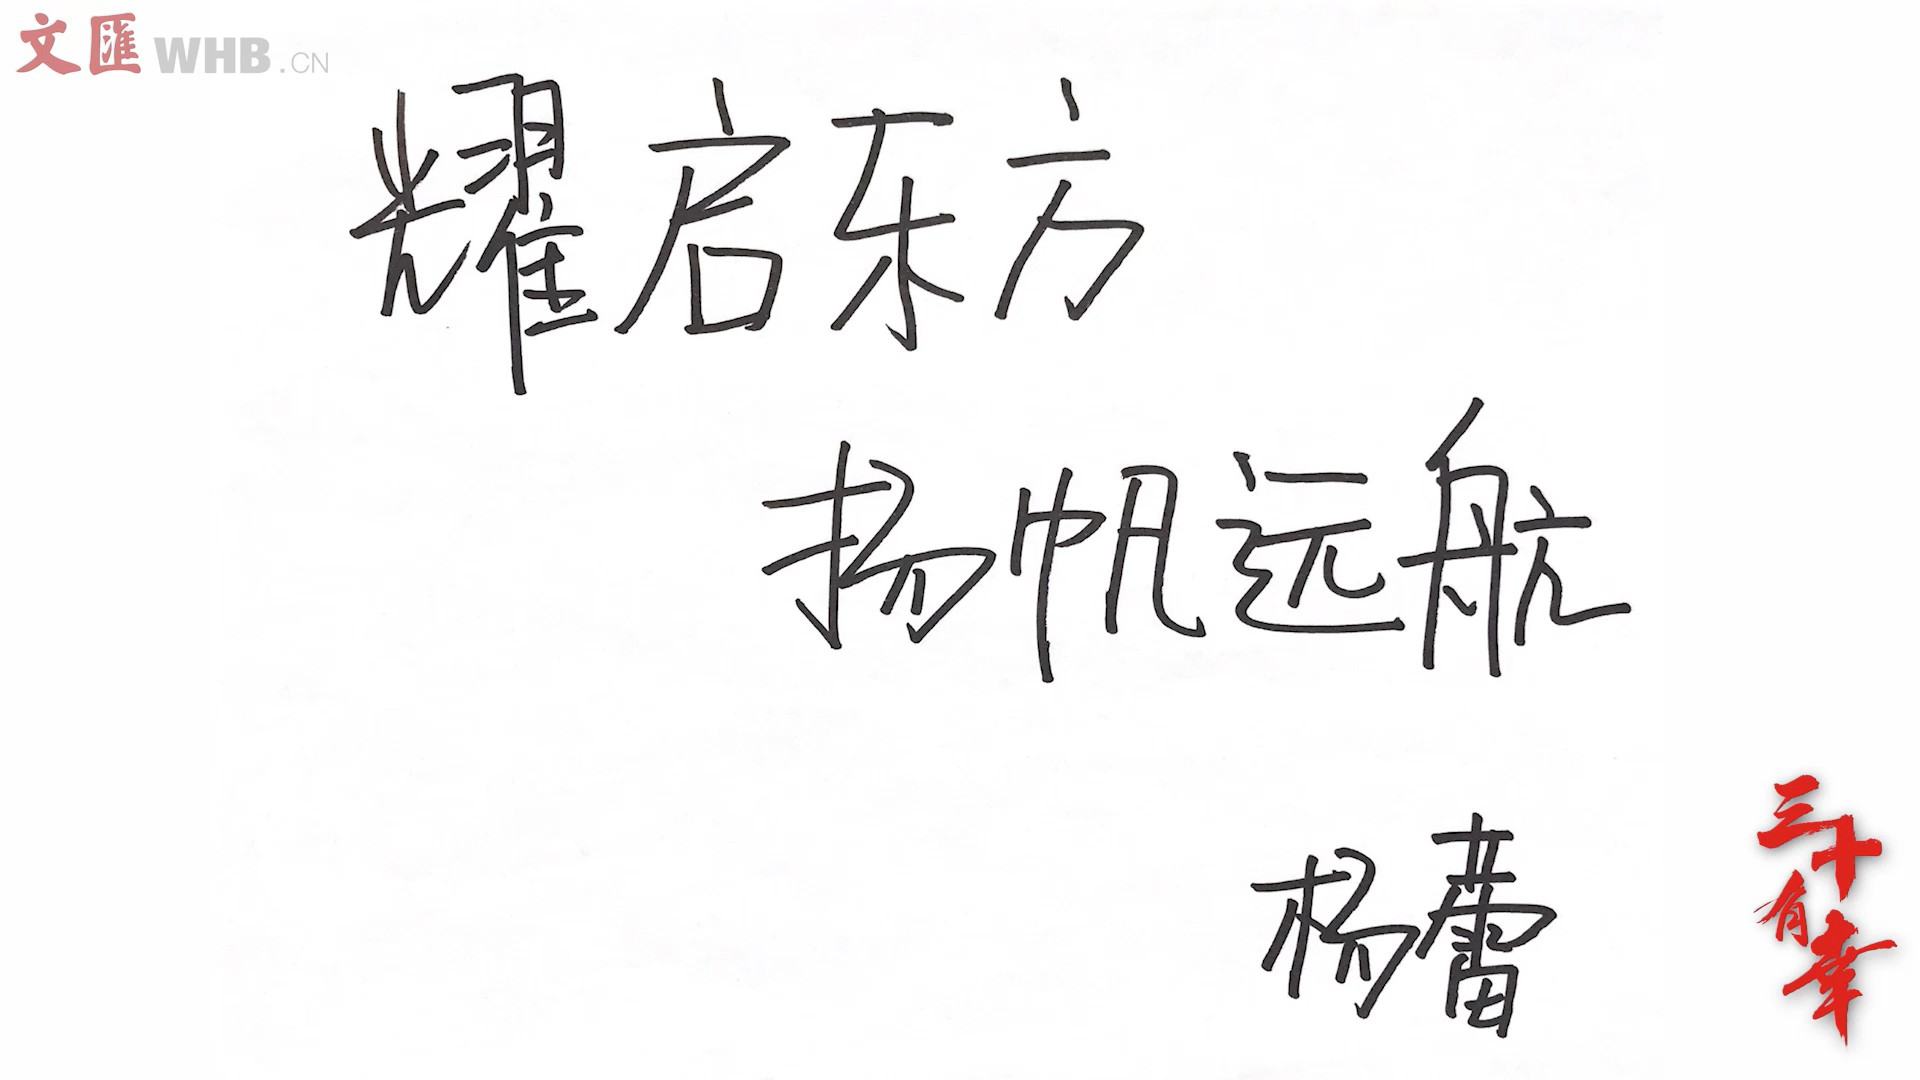 文匯 WHB.CN
耀启东方
扬帆远航
杨蕾
三十
有幸